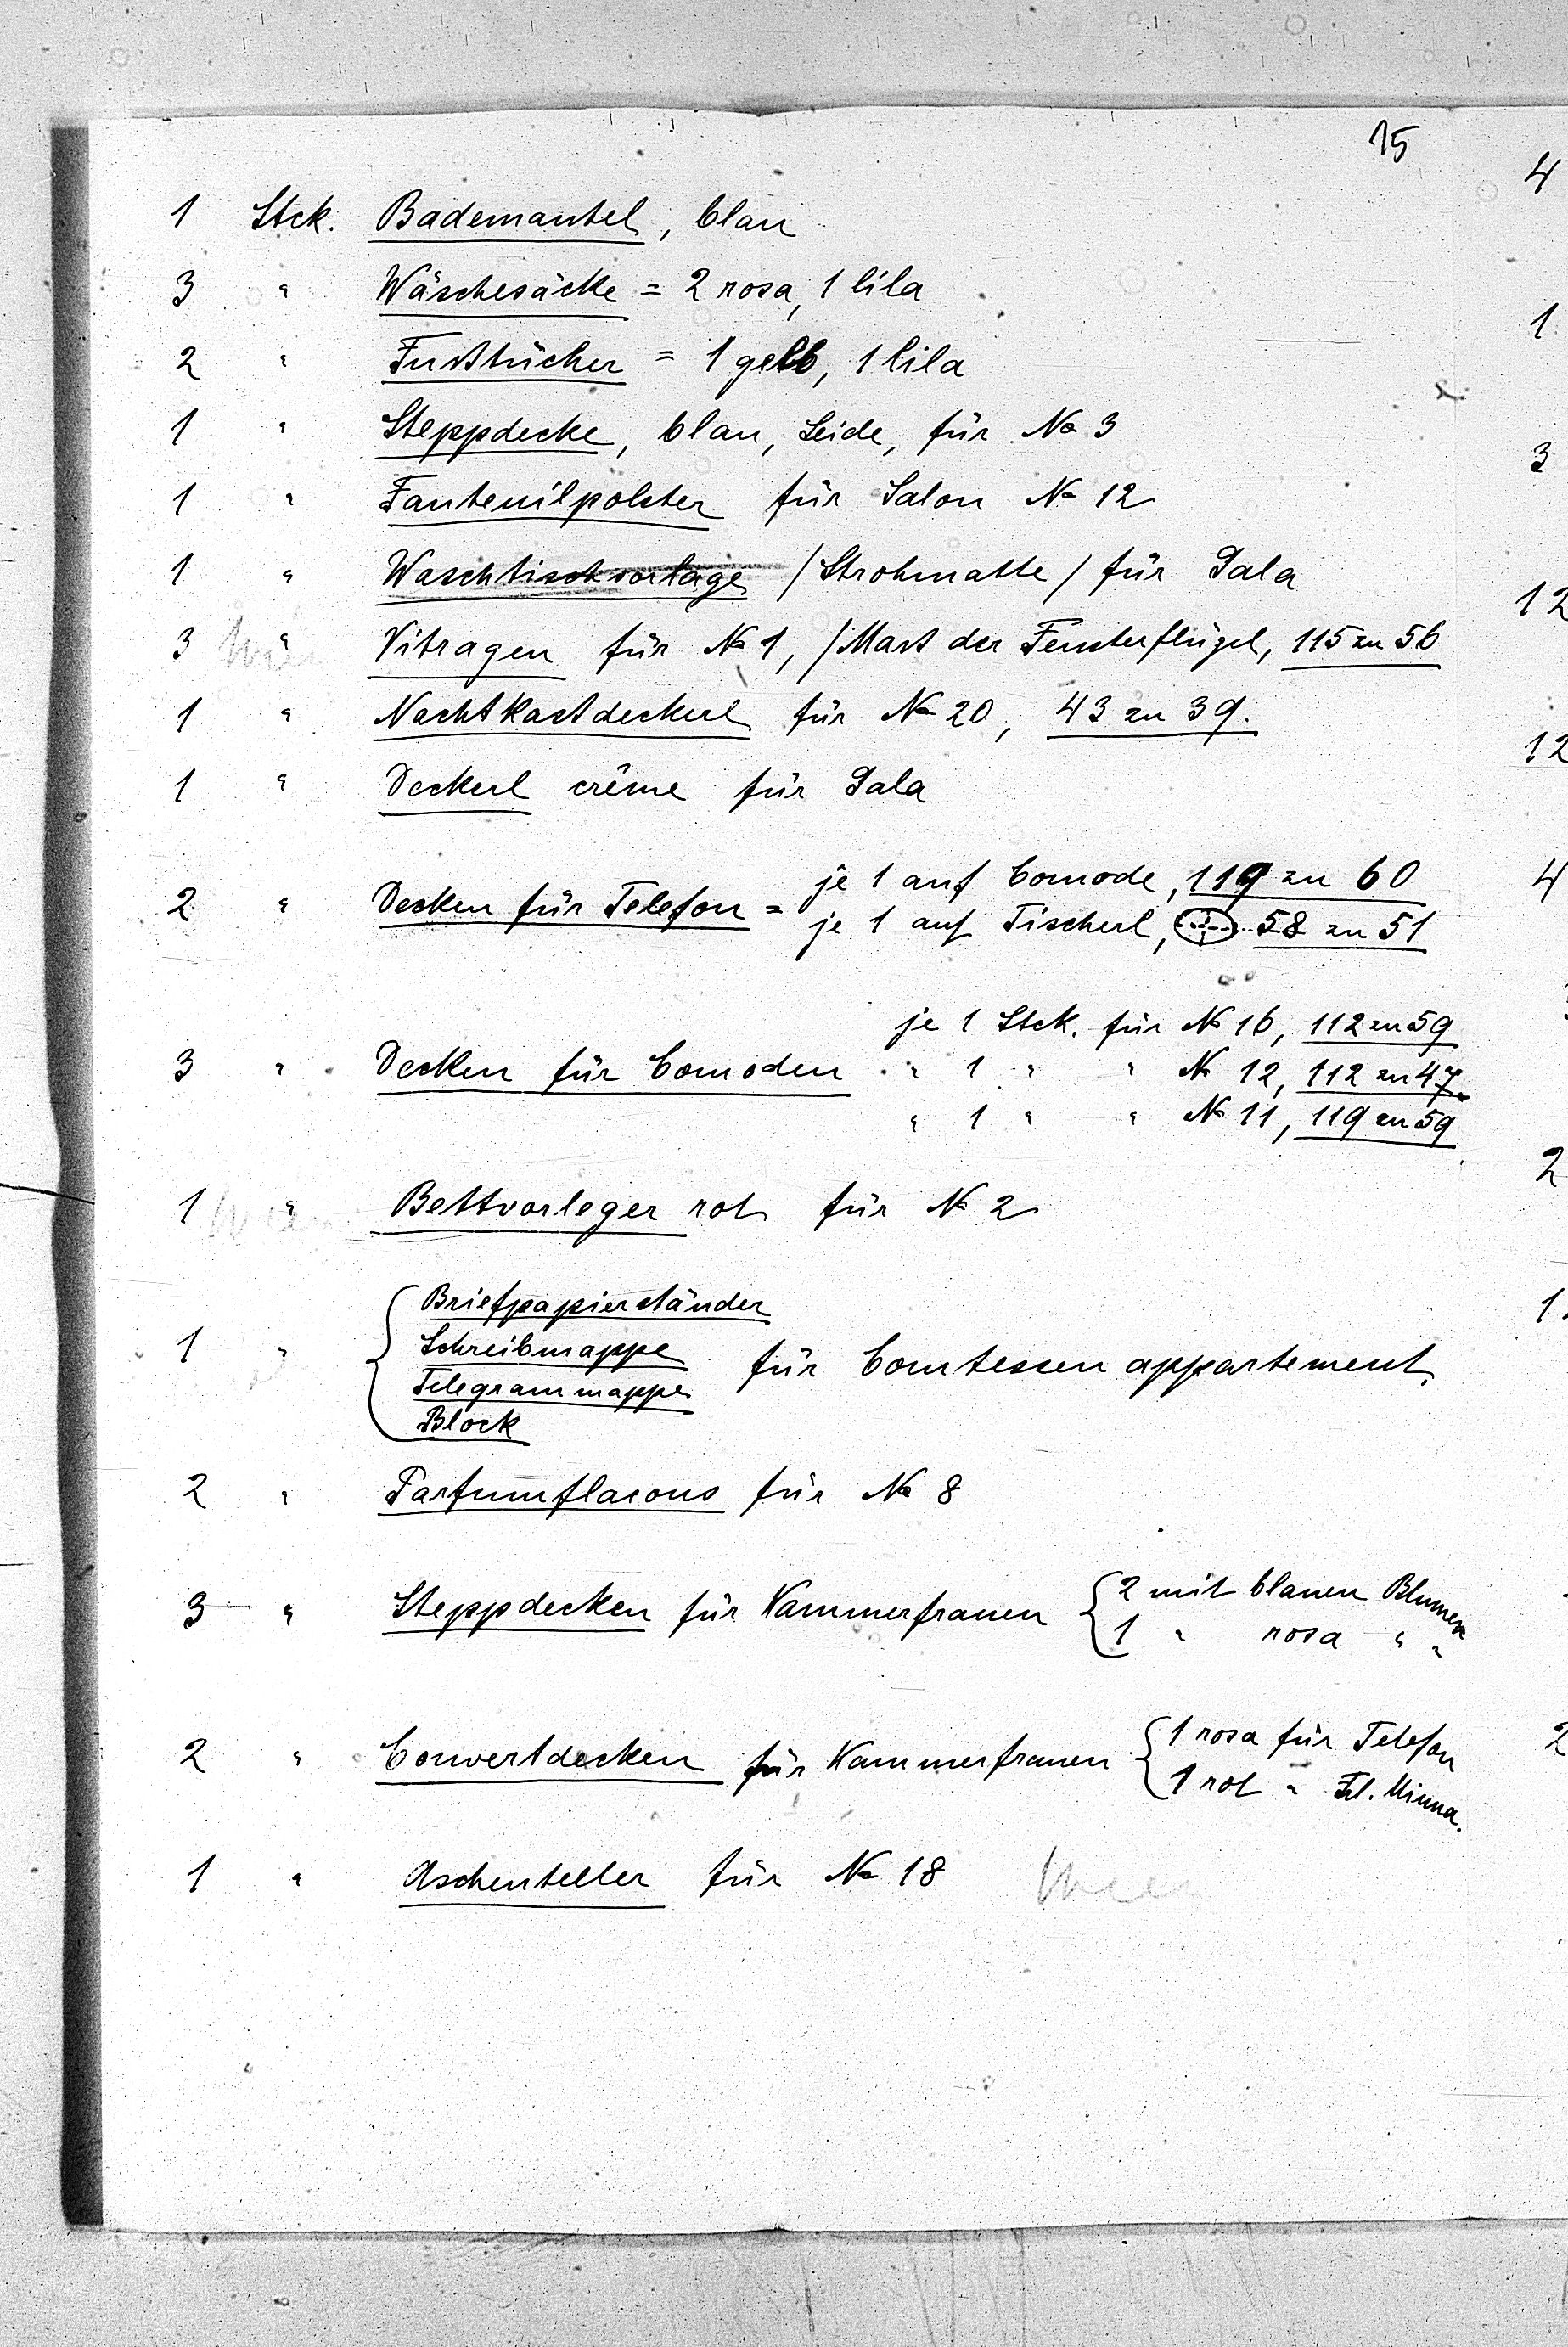 15
1 Stck. Bademantel, blau
3 " Wäschesäcke = 2 rosa, 1 lila
2 " Fusstücher = 1 gelb, 1 lila
1 " Steppdecke, blau, Seide, für No 3
1 " Fauteuilpolster für Salon No 12
1 " Waschtischvorlage /Strohmatte/ für Sala
3 " Vitragen für No 1, /Mass der Fensterflügel, 115 zu 56
1 " Nachtkastdeckerl für No 20, 43 zu 39.
1 " Deckerl crême für Sala
je 1 auf Comode, 119 zu 60
2 " Decken für Telefon =
je 1 auf Tischerl, 58 zu 51
je 1 Stck. für No 16, 112 zu 59
3 " Decken für Comoden " 1 " " No 12, 112 zu 47
" 1 " " No 11, 119 zu 59
1 " Bettvorleger rot für No 2
Briefpapierständer
1 " Schreibmappe für Comtessenappartement.
Telegrammappe
Block
2 " Parfumflacons für No 8
3 " Steppdecken für Kammerfrauen 2 mit blauen Blumen
1 " rosa " "
2 " Couvertdecken für Kammerfrauen 1 rosa für Telefon
1 rot " Frl. Minna.
1 " Aschenteller für No 18
4
1
3
12
12
4
2
1
2